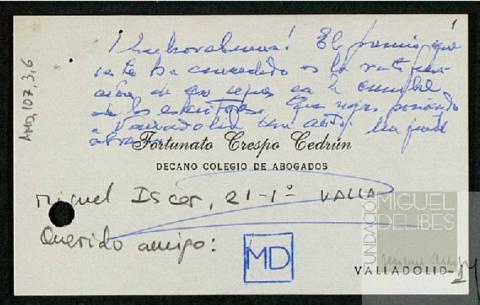 1
¡Enhorabuena! El premio que
se te ha concedido es la ratificación
de que sigues en la cumbre
de los escritores. Que sigas poniendo
a Valladolid tan alto. Un fuerte
abrazo
Fortunato Crespo Cedrún
DECANO COLEGIO DE ABOGADOS
Miguel Iscar, 21-1º VALLA
Querido amigo:
MD
VALLADOLID-
AMD, 107, 3, 6
FUNDACIÓN
MIGUEL
DELIBES